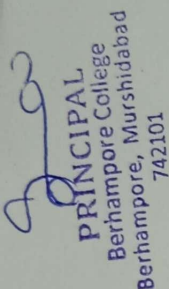 PRINCIPAL
Berhampore College
Berhampore, Murshidabad
742101